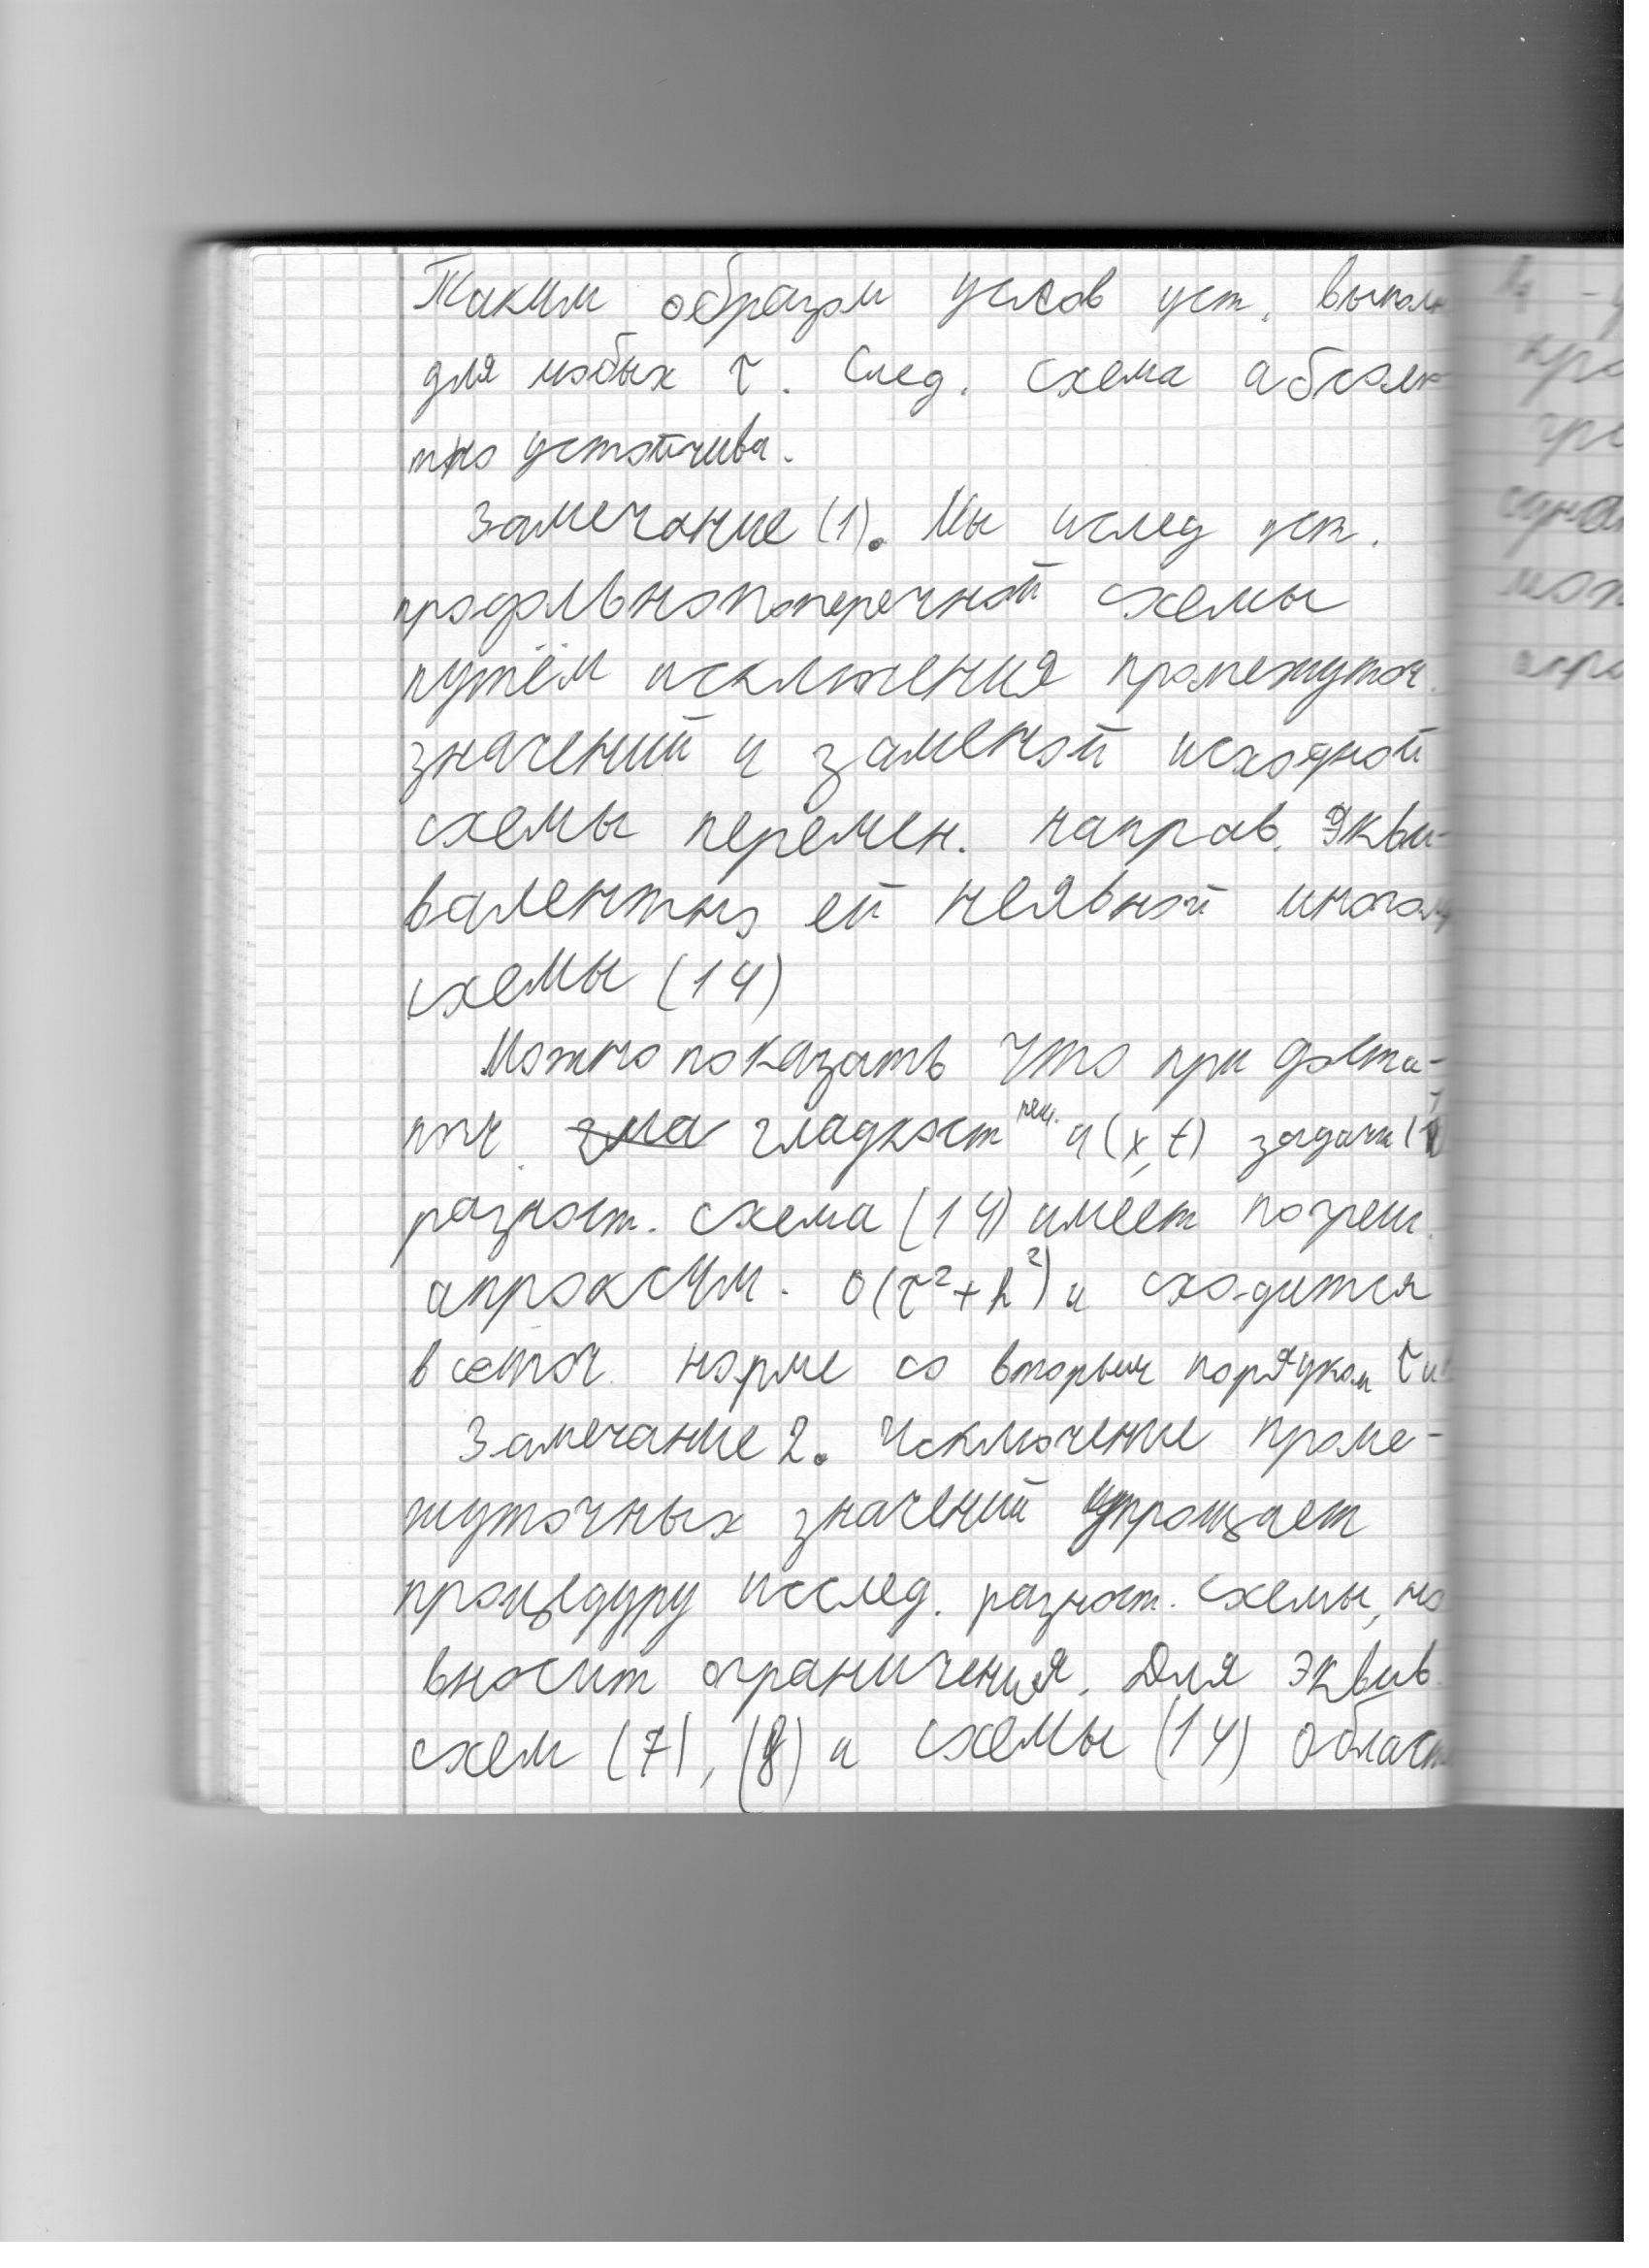 Таким образом услов уст. выполн
для любых τ. След. схема абсолю
тно устойчива.
Замечание (1). Мы ислед уст.
продольнопоперечной схемы
путём исключения промежуточ.
значений и заменой исходной
схемы перемен. направ. экви-
валентно ей неявной многом
схемы (14)
Можно показать что при доста-
точ. гладкост реш. u(x,t) задачи (1
разност. схема (14) имеет погреш.
апроксим. O(τ²+h²) и сходится
в сеточ. норме со вторым порядком τ и
Замечание 2. Исключение проме-
жуточных значений упрощает
процедуру исслед. разност. схемы, но
вносит ограничения. Для эквив
схем (7), (8) и схемы (14) област